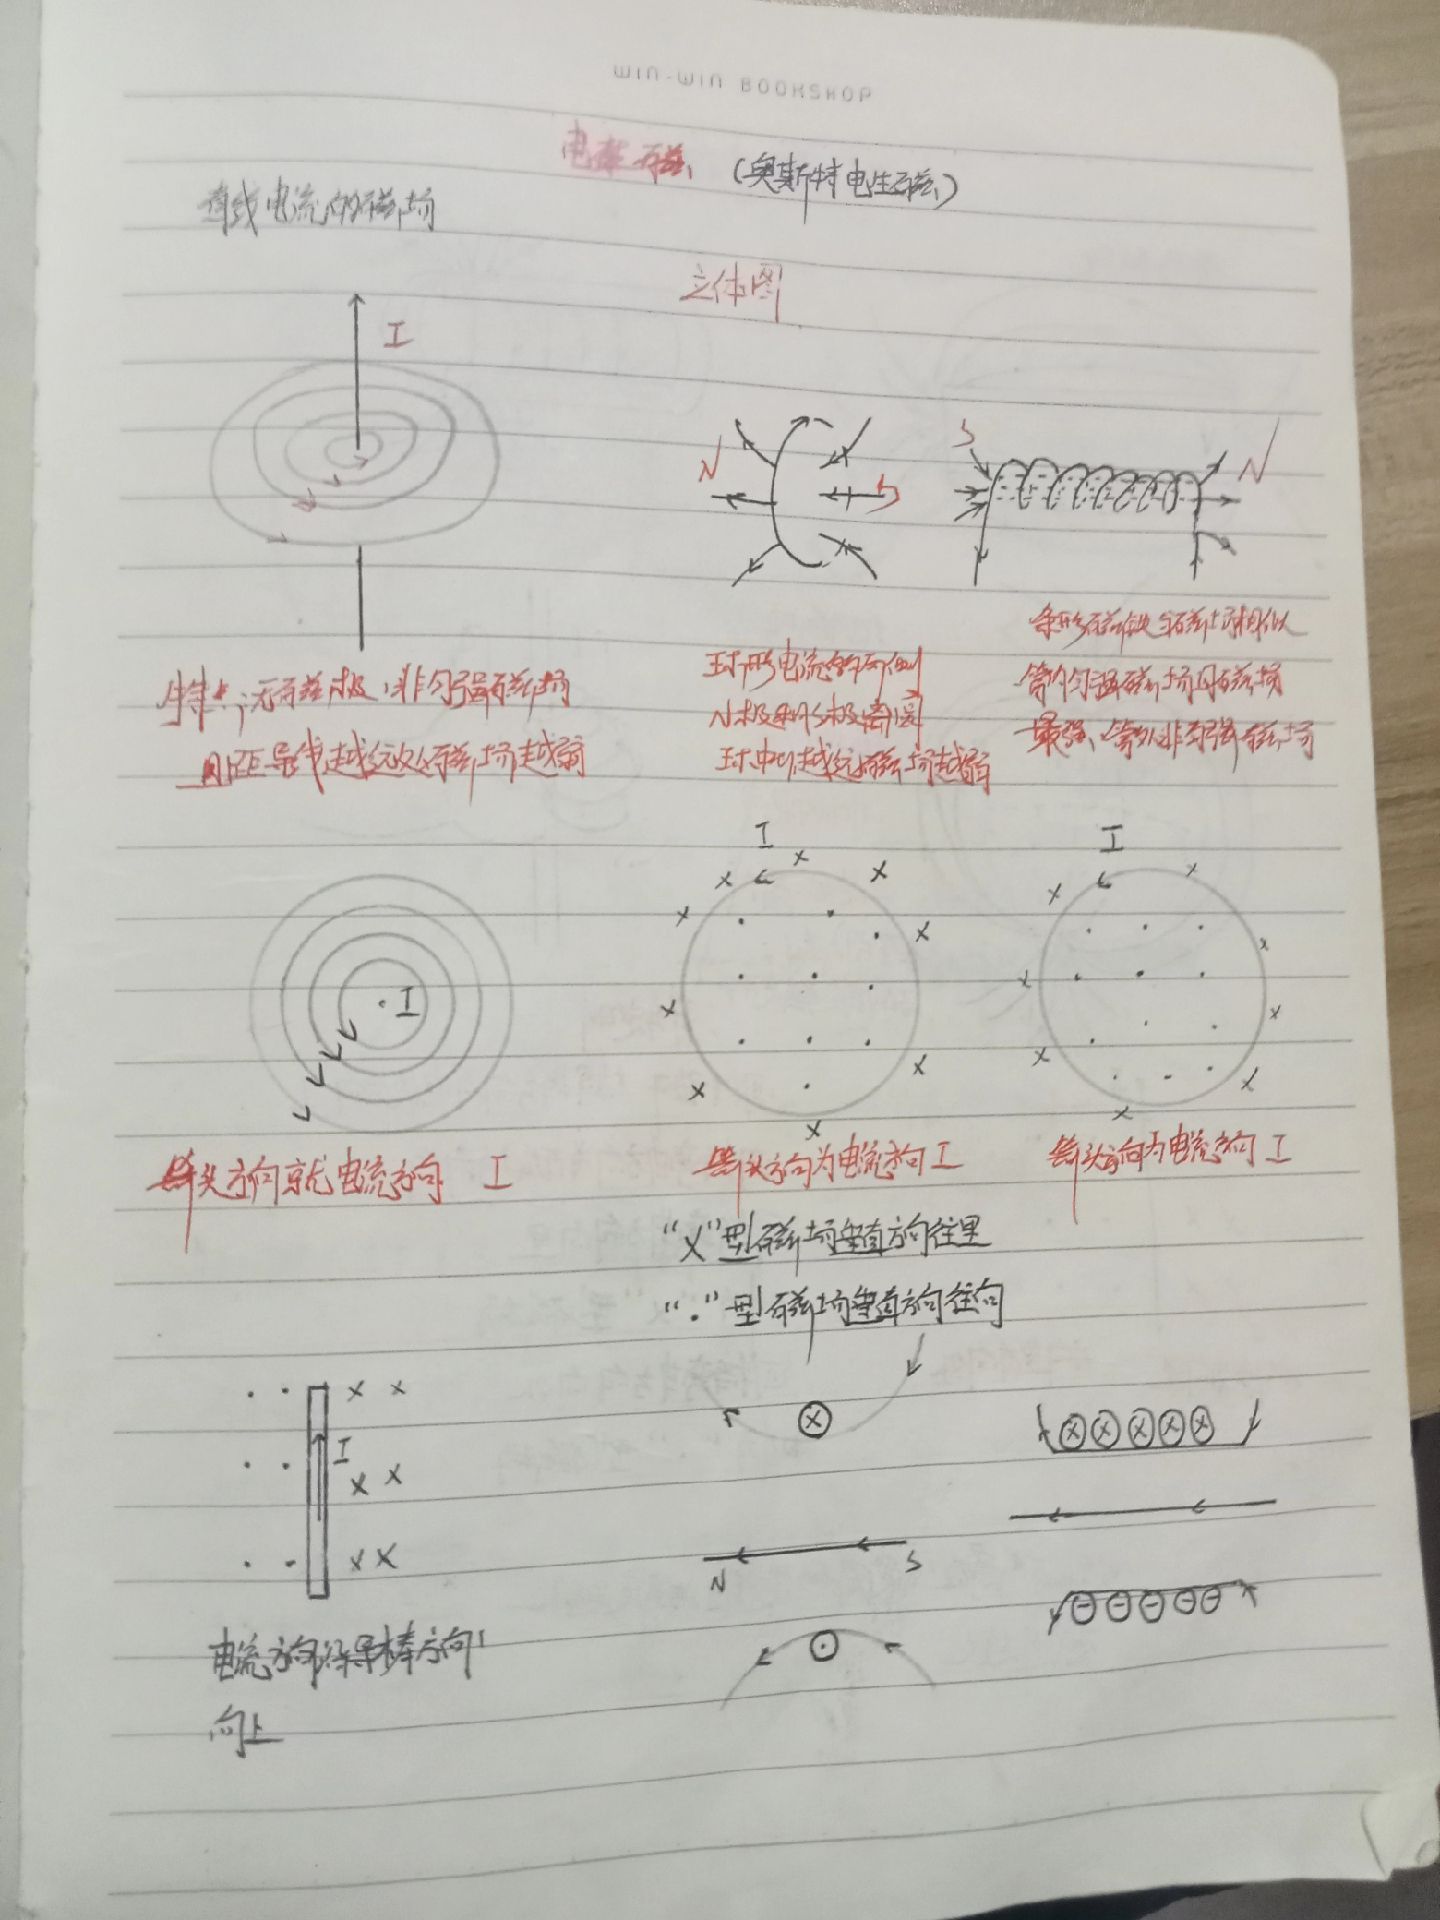 WIN-WIN BOOKSHOP
电生磁 (奥斯特电生磁)
直线电流的磁场
立体图
I
N
S
S
N
特点:无磁极,非匀强磁场
且距导线越远处磁场越弱
环形电流的两侧
N极和S极离
环中心越远磁场越弱
条形磁铁与磁场相似
管内匀强磁场且磁场
最强、管外非匀强磁场
I
I
I
箭头方向就电流方向 I
箭头方向为电流方向 I
箭头方向为电流方向 I
"X"型磁场垂直方向往里
"."型磁场垂直方向往向
I
N
S
电流方向沿导棒方向
向上